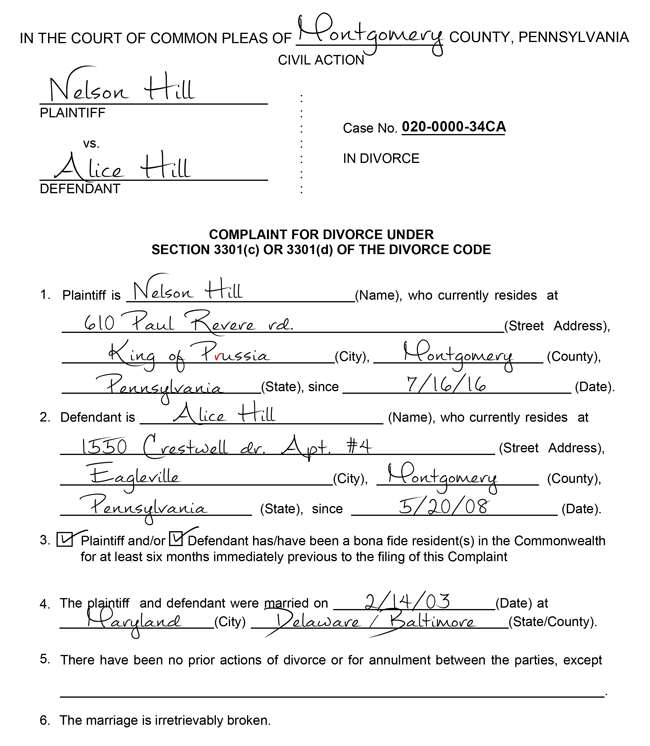 IN THE COURT OF COMMON PLEAS OF Montgomery COUNTY, PENNSYLVANIA
CIVIL ACTION
Nelson Hill
PLAINTIFF
vs.
Alice Hill
DEFENDANT
:
:
:
:
:
:
:
Case No. 020-0000-34CA
IN DIVORCE
COMPLAINT FOR DIVORCE UNDER
SECTION 3301(c) OR 3301(d) OF THE DIVORCE CODE
1. Plaintiff is Nelson Hill (Name), who currently resides at
610 Paul Revere rd. (Street Address),
King of Prussia (City), Montgomery (County),
Pennsylvania (State), since 7/16/16 (Date).
2. Defendant is Alice Hill (Name), who currently resides at
1550 Crestwell dr. Apt. #4 (Street Address),
Eagleville (City), Montgomery (County),
Pennsylvania (State), since 5/20/08 (Date).
3. ☑ Plaintiff and/or ☑ Defendant has/have been a bona fide resident(s) in the Commonwealth
for at least six months immediately previous to the filing of this Complaint
4. The plaintiff and defendant were married on 2/14/03 (Date) at
Maryland (City) Delaware / Baltimore (State/County).
5. There have been no prior actions of divorce or for annulment between the parties, except
.
6. The marriage is irretrievably broken.